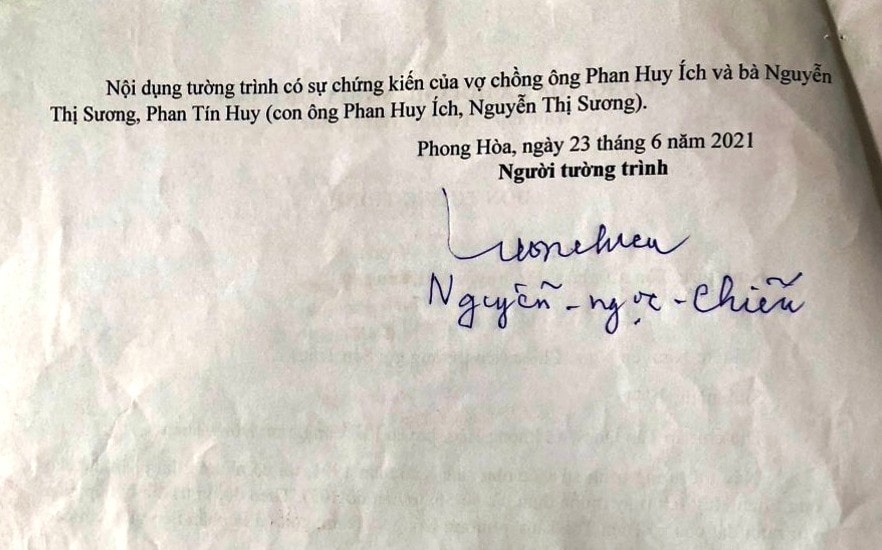 Nội dung tường trình có sự chứng kiến của vợ chồng ông Phan Huy Ích và bà Nguyễn
Thị Sương, Phan Tín Huy (con ông Phan Huy Ích, Nguyễn Thị Sương).
Phong Hòa, ngày 23 tháng 6 năm 2021
Người tường trình
Nguyễn - ngọc - Chiễu